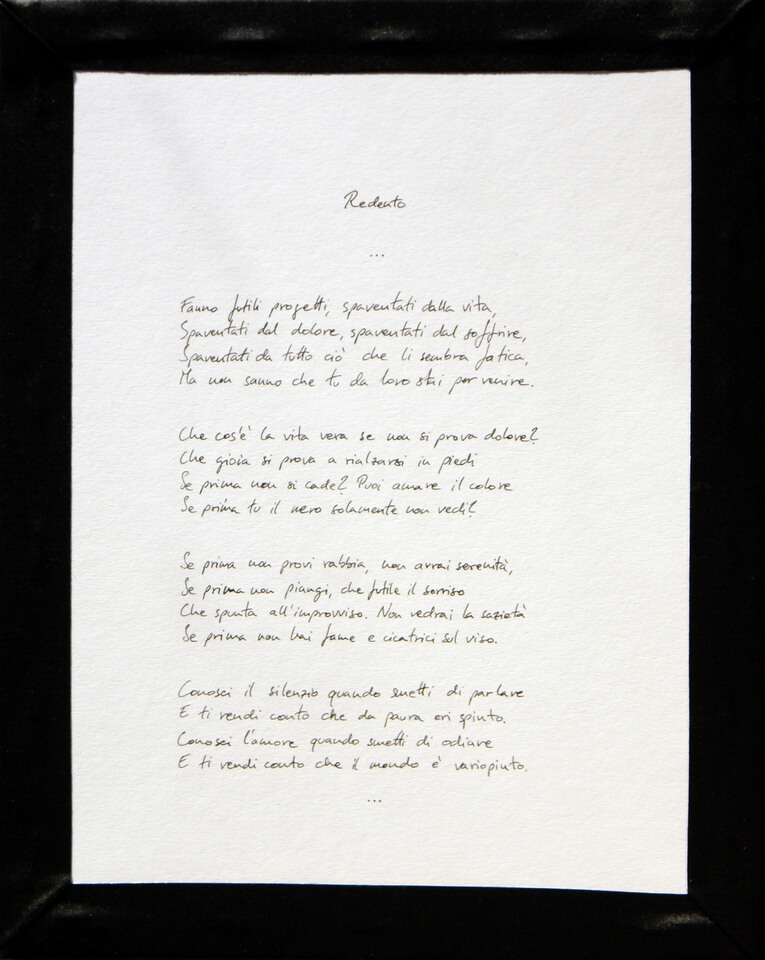 Redento
...
Fanno futili progetti, spaventati dalla vita,
Spaventati dal dolore, spaventati dal soffrire,
Spaventati da tutto ciò che li sembra fatica,
Ma non sanno che tu da loro stai per venire.
Che cos'è la vita vera se non si prova dolore?
Che gioia si prova a rialzarsi in piedi
Se prima non si cade? Puoi amare il colore
Se prima tu il nero solamente non vedi?
Se prima non provi rabbia, non avrai serenità,
Se prima non piangi, che futile il sorriso
Che spunta all'improvviso. Non vedrai la sazietà
Se prima non hai fame e cicatrici sul viso.
Conosci il silenzio quando smetti di parlare
E ti rendi conto che da paura eri spinto.
Conosci l'amore quando smetti di odiare
E ti rendi conto che il mondo è variopinto.
...